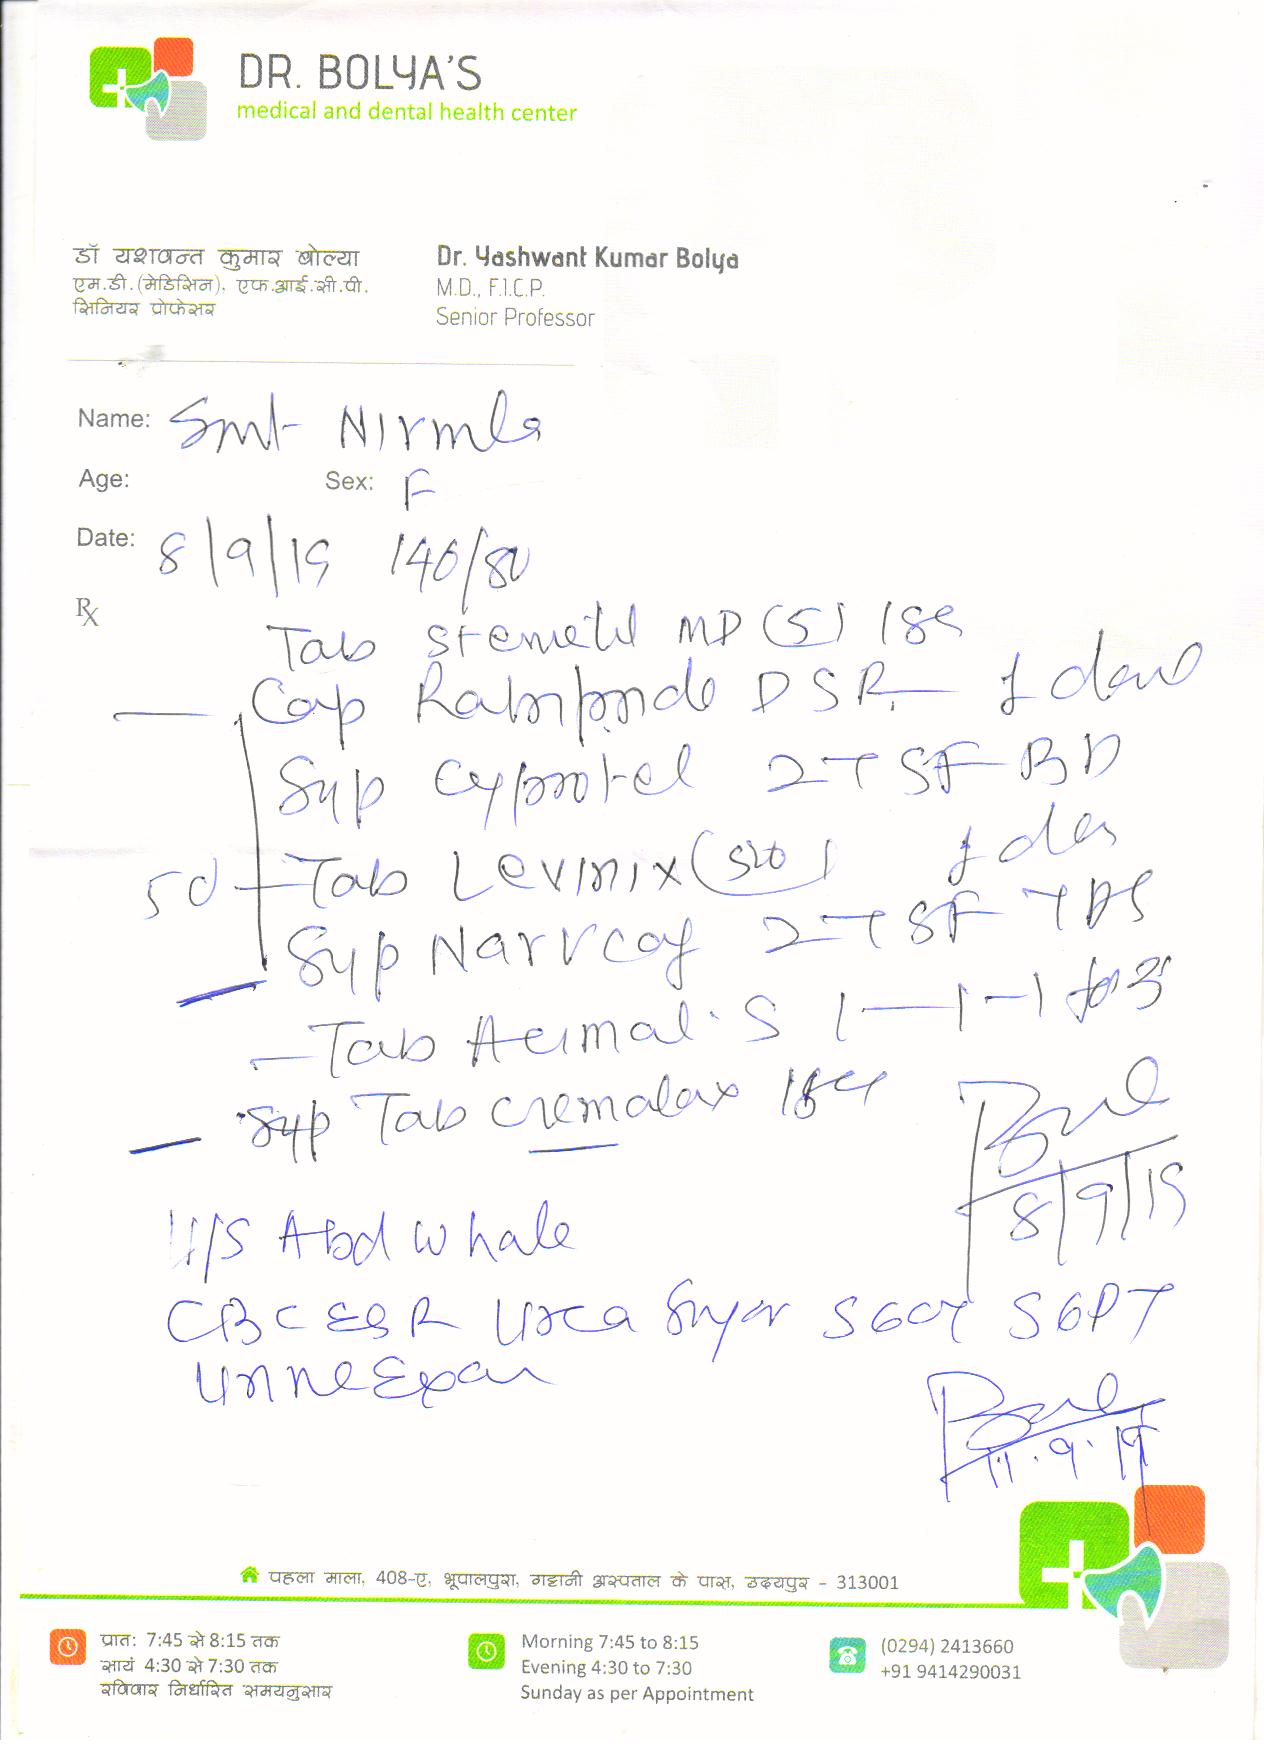 DR. BOLYA'S
medical and dental health center
डॉ यशवन्त कुमार बोल्या
एम.डी. (मेडिसिन), एफ.आई.सी.पी.
सिनियर प्रोफेसर
Dr. Yashwant Kumar Bolya
M.D., F.I.C.P.
Senior Professor
Name: Smt Nirmla
Age: Sex: F
Date: 8/9/19 140/80
Rx
Tab Stemetil MD (5)
Cap DSR
Syp 2 TSF BD
5d Tab
Syp 2 TSF TDS
Tab 1-1-1 for 3
Syp Tab Cremalax
8/9/19
U/S Abd Whole
CBC ESR Urea Sugar SGOT SGPT
Urine Exam
11.9.19
पहला माला, 408-ए, भूपालपुरा, गट्टानी अस्पताल के पास, उदयपुर - 313001
प्रात: 7:45 से 8:15 तक
सायं 4:30 से 7:30 तक
रविवार निर्धारित समयनुसार
Morning 7:45 to 8:15
Evening 4:30 to 7:30
Sunday as per Appointment
(0294) 2413660
+91 9414290031